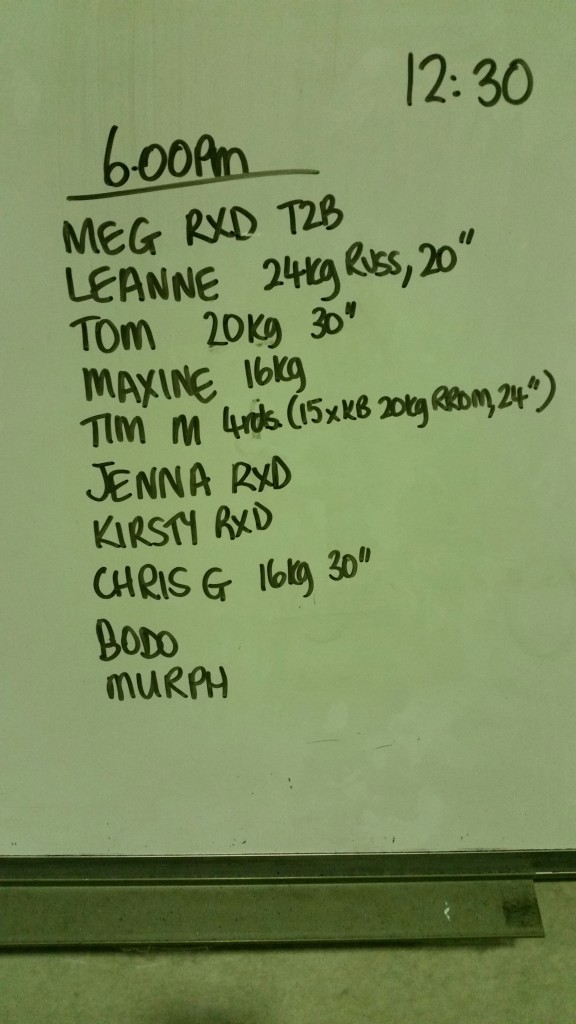 12:30
6.00pm
MEG RXD T2B
LEANNE 24kg RUSS, 20"
TOM 20kg 30"
MAXINE 16kg
TIM M 4rds. (15xKB 20kg RROM, 24")
JENNA RXD
KIRSTY RXD
CHRIS G 16kg 30"
BODO
MURPH